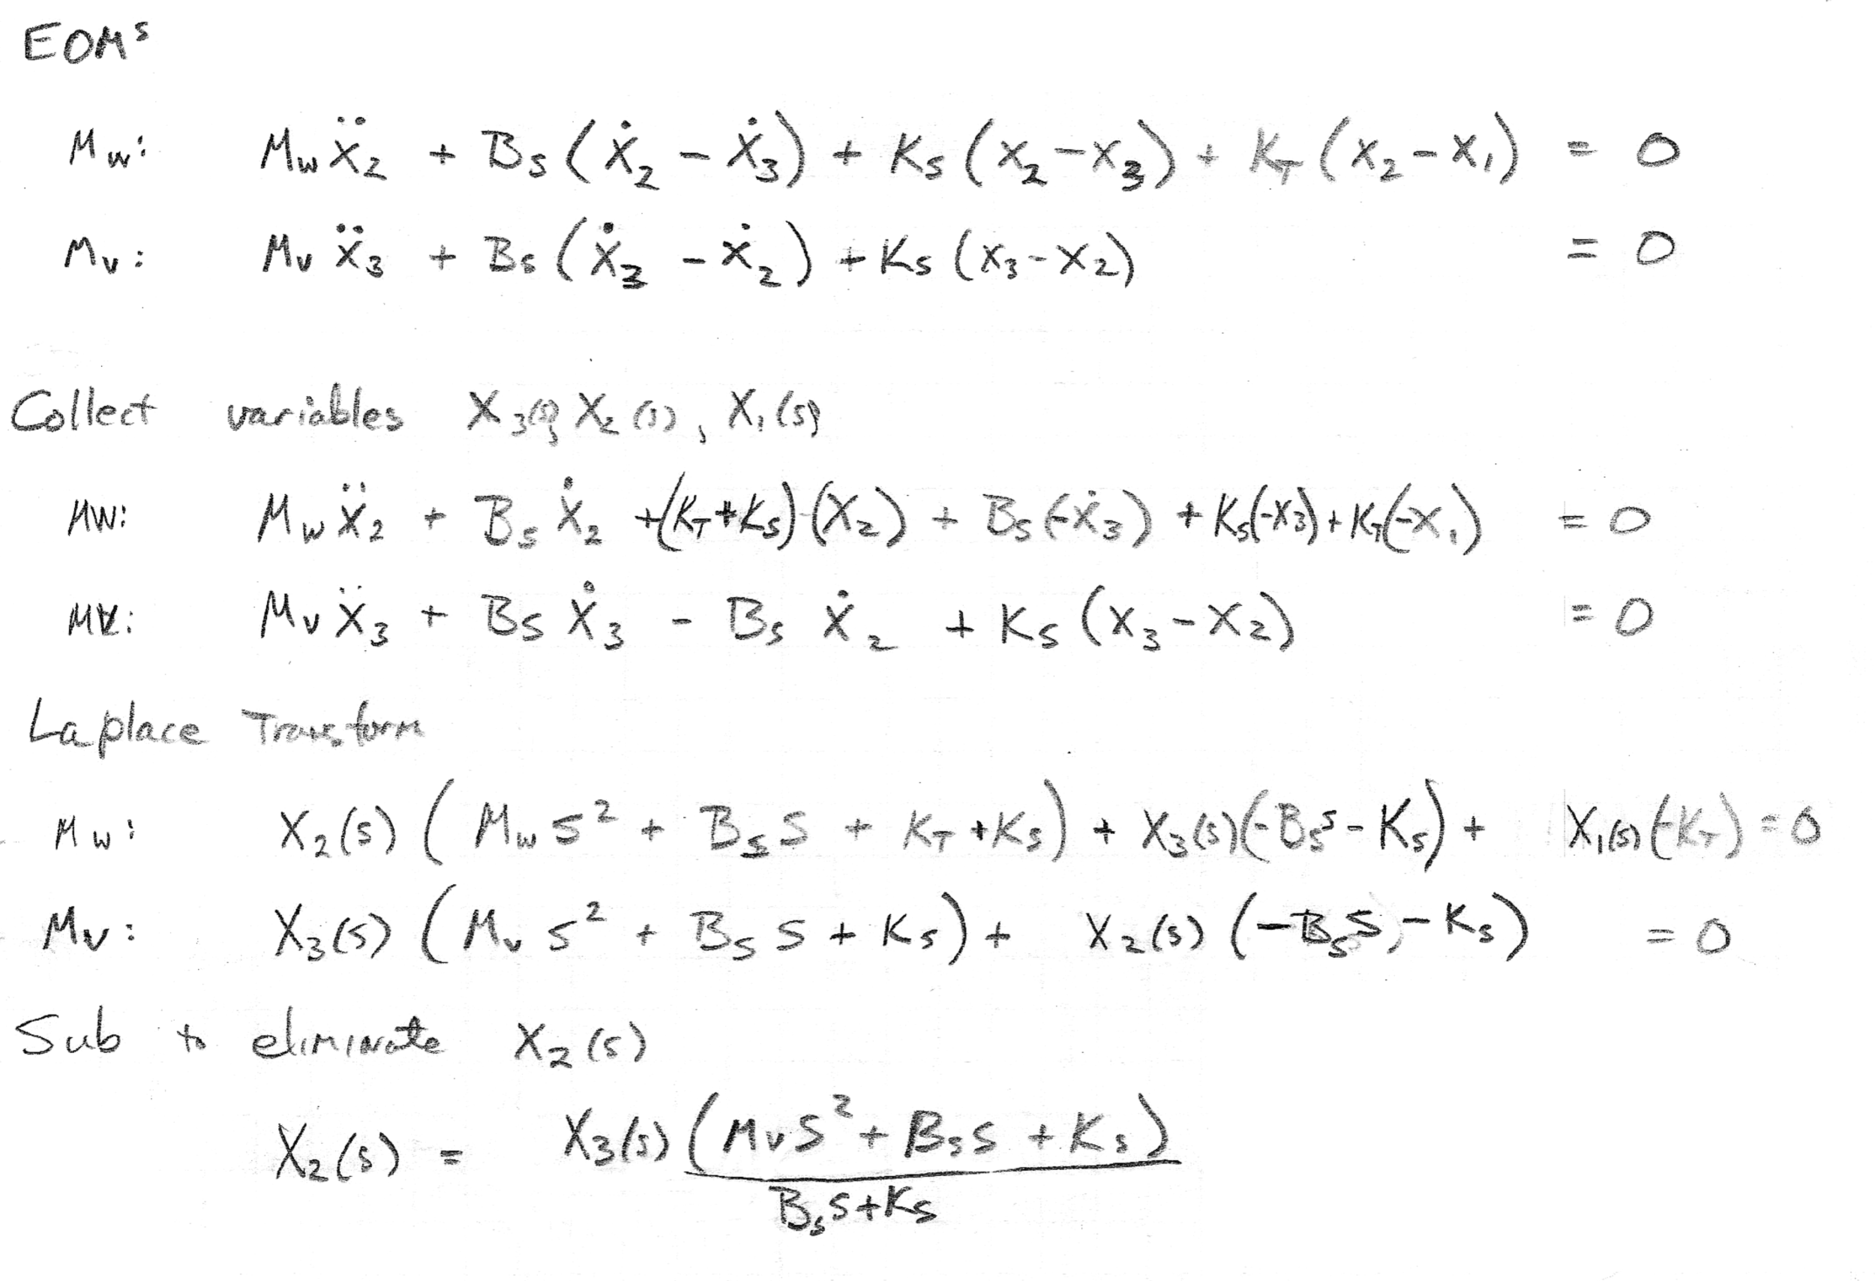 EOMs
Mw: Mw ẍ2 + Bs (ẋ2 - ẋ3) + Ks (x2 - x3) + KT (x2 - x1) = 0
Mv: Mv ẍ3 + Bs (ẋ3 - ẋ2) + Ks (x3 - x2) = 0
Collect variables X3(s), X2(s), X1(s)
MW: Mw ẍ2 + Bs ẋ2 + (KT + Ks)(x2) + Bs(-ẋ3) + Ks(-x3) + KT(-x1) = 0
MV: Mv ẍ3 + Bs ẋ3 - Bs ẋ2 + Ks (x3 - x2) = 0
Laplace Transform
Mw: X2(s) (Mw s² + Bs s + KT + Ks) + X3(s)(-Bs s - Ks) + X1(s)(-KT) = 0
Mv: X3(s) (Mv s² + Bs s + Ks) + X2(s) (-Bs s - Ks) = 0
Sub to eliminate X2(s)
X2(s) = X3(s) (Mv s² + Bs s + Ks)
Bs s + Ks